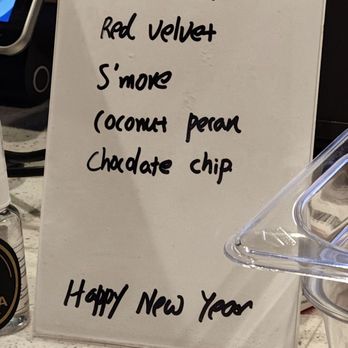 Red velvet
S'more
Coconut peran
Chocolate chip
Happy New Year
A